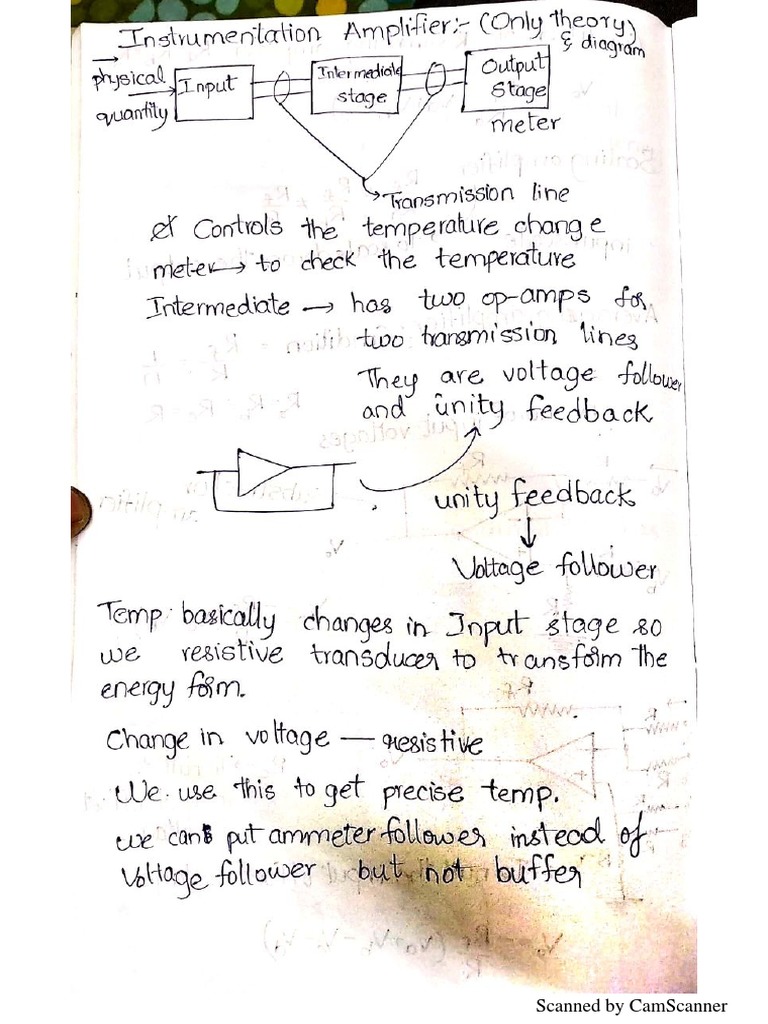 Instrumentation Amplifier:- (Only theory)
& diagram
physical
quantity
Input
Intermediate
stage
Output
Stage
meter
Transmission line
Controls the temperature change
meter → to check the temperature
Intermediate → has two op-amps for
two transmission lines
They are voltage follower
and unity feedback
unity feedback
↓
Voltage follower
Temp basically changes in Input stage so
we resistive transducer to transform the
energy form.
Change in voltage — resistive
We use this to get precise temp.
we can put ammeter follower instead of
Voltage follower but not buffer
Scanned by CamScanner